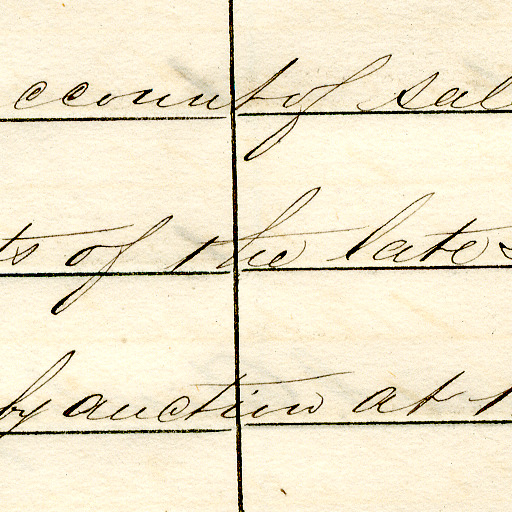 ccount of sal
ts of the late s
by auction at t